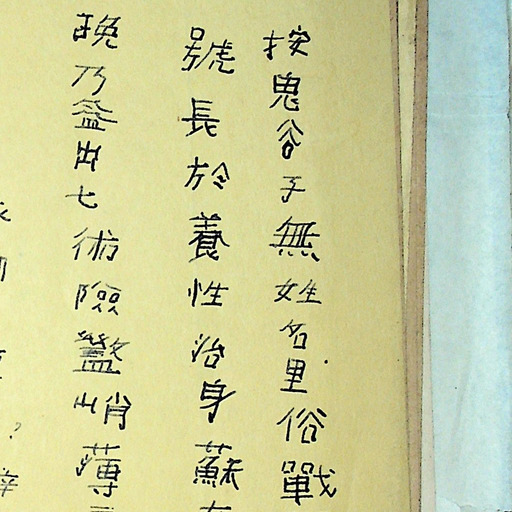 按鬼谷子無姓名里俗戰
號長於養性治身蘇
晩乃益出七術險盭峭薄